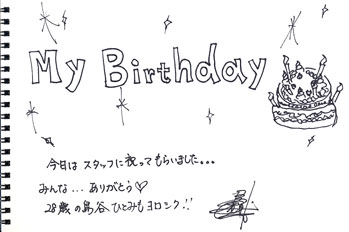 My Birthday
今日は スタッフに祝ってもらいました...
みんな... ありがとう♡
28歳の島谷ひとみもヨロシク!!